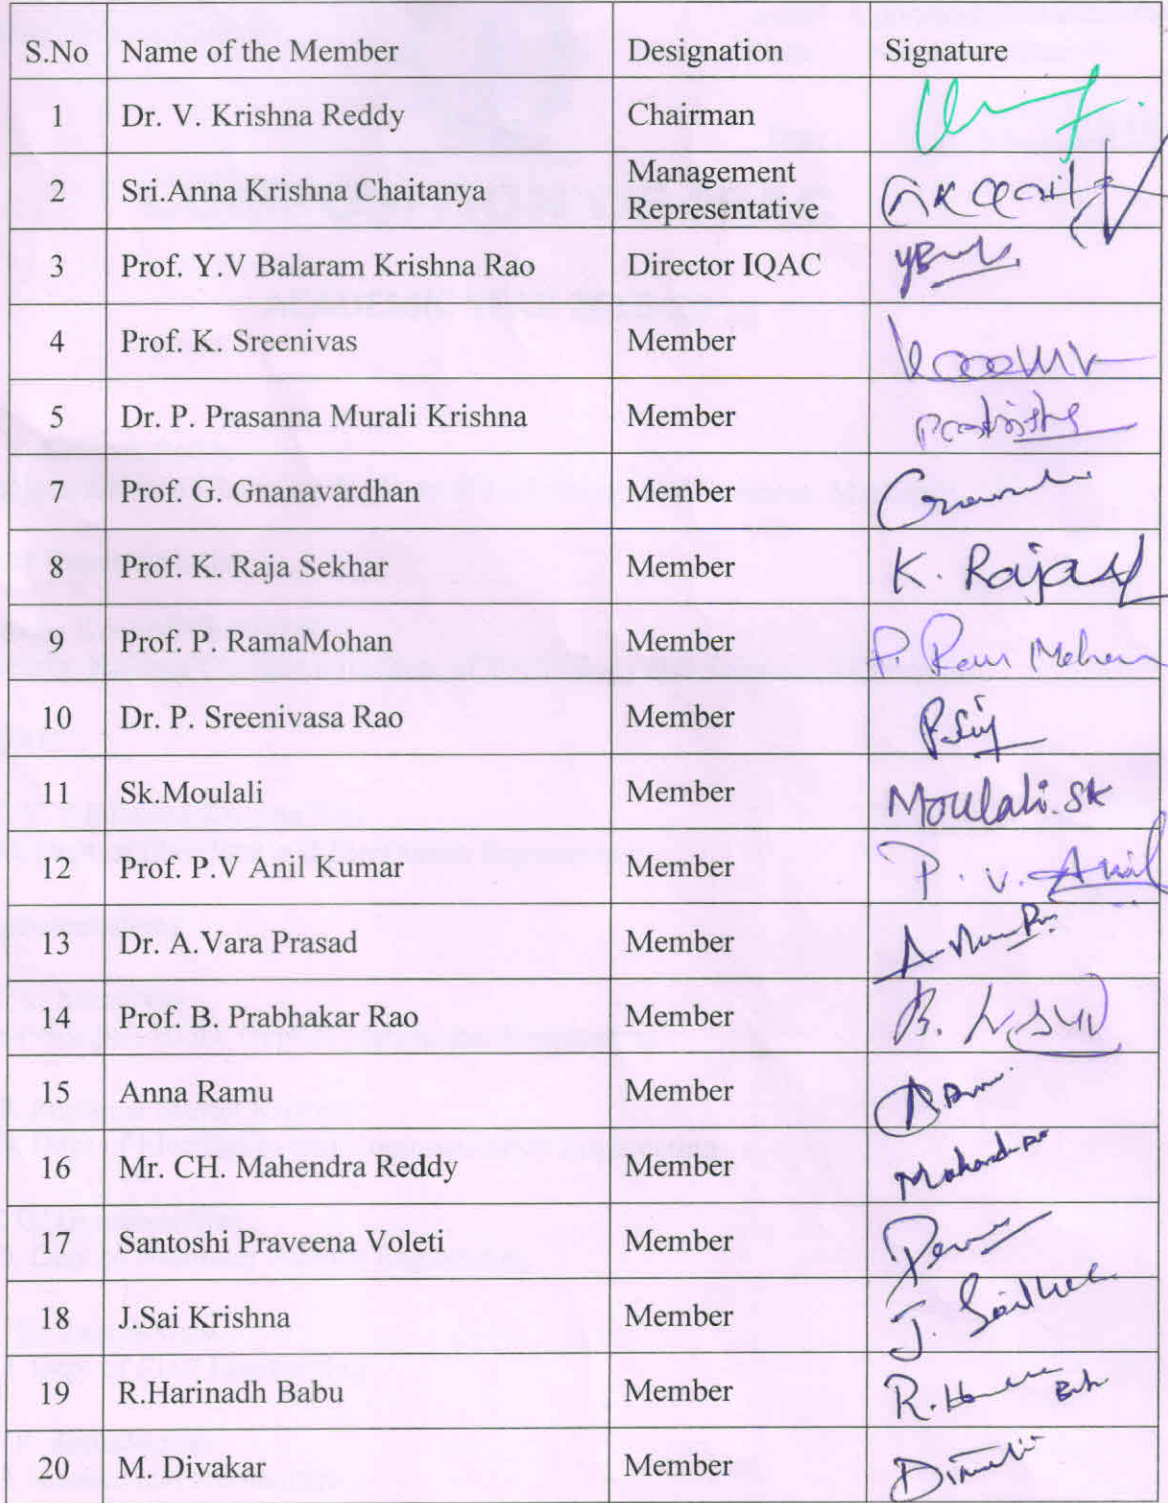 S.No Name of the Member Designation Signature
1 Dr. V. Krishna Reddy Chairman
2 Sri.Anna Krishna Chaitanya Management Representative
3 Prof. Y.V Balaram Krishna Rao Director IQAC
4 Prof. K. Sreenivas Member
5 Dr. P. Prasanna Murali Krishna Member
7 Prof. G. Gnanavardhan Member
8 Prof. K. Raja Sekhar Member K. Rajas
9 Prof. P. RamaMohan Member P. Ram Mohan
10 Dr. P. Sreenivasa Rao Member
11 Sk.Moulali Member Moulali.SK
12 Prof. P.V Anil Kumar Member P. V. Anil
13 Dr. A.Vara Prasad Member
14 Prof. B. Prabhakar Rao Member
15 Anna Ramu Member
16 Mr. CH. Mahendra Reddy Member
17 Santoshi Praveena Voleti Member
18 J.Sai Krishna Member
19 R.Harinadh Babu Member
20 M. Divakar Member